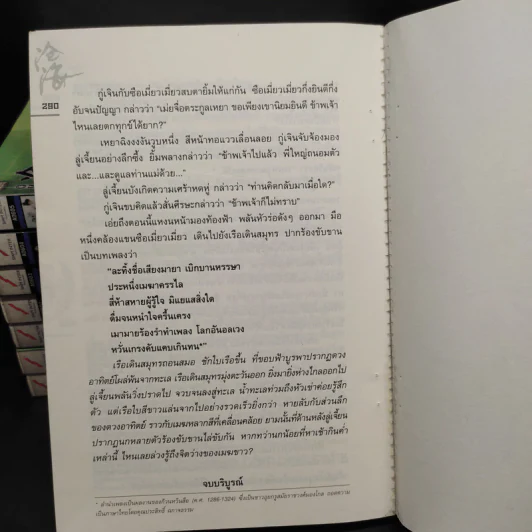 滄海
290
กู่เจินกับซือเมี่ยวเมี่ยวสบตายิ้มให้แก่กัน ซือเมี่ยวเมี่ยวกึ่งยินดีกึ่ง
อับจนปัญญา กล่าวว่า "เม่ยจื่อตระกูลเหยา ขอเพียงเขานิยมยินดี ข้าพเจ้า
ไหนเลยตกทุกข์ได้ยาก?"
เหยาฉิงงงงันวูบหนึ่ง สีหน้าทอแววเลื่อนลอย กู่เจินจับจ้องมอง
ลู่เจี้ยนอย่างลึกซึ้ง ยิ้มพลางกล่าวว่า "ข้าพเจ้าไปแล้ว พี่ใหญ่ถนอมตัว
และ...และดูแลท่านแม่ด้วย..."
ลู่เจี้ยนบังเกิดความเศร้าหดหู่ กล่าวว่า "ท่านคิดกลับมาเมื่อใด?"
กู่เจินขบคิดแล้วสั่นศีรษะกล่าวว่า "ข้าพเจ้าก็ไม่ทราบ"
เอ่ยถึงตอนนี้แหงนหน้ามองท้องฟ้า พลันหัวร่อดังๆ ออกมา มือ
หนึ่งคล้องแขนซือเมี่ยวเมี่ยว เดินไปยังเรือเดินสมุทร ปากร้องขับขาน
เป็นบทเพลงว่า
"ละทิ้งชื่อเสียงมายา เบิกบานหรรษา
ประหนึ่งเมฆาครรไล
สี่ห้าสหายผู้รู้ใจ มิแยแสสิ่งใด
ดื่มจนหนำใจครื้นเครง
เมามายร้องรำทำเพลง โลกอันอลเวง
หวั่นเกรงคับแคบเกินทน*"
เรือเดินสมุทรถอนสมอ ชักใบเรือขึ้น ที่ขอบฟ้าบูรพาปรากฏดวง
อาทิตย์โผล่พ้นจากทะเล เรือเดินสมุทรมุ่งตะวันออก ยิ่งมายิ่งห่างไกลออกไป
ลู่เจี้ยนพลันวิ่งปราดไป จวบจนลงสู่ทะเล น้ำทะเลท่วมถึงหัวเข่าค่อยรู้สึก
ตัว แต่เรือใบสีขาวแล่นจากไปอย่างรวดเร็วยิ่งกว่า หายลับกับส่วนลึก
ของดวงอาทิตย์ ราวกับเมฆหลากสีที่เคลื่อนคล้อย ยามนั้นที่ด้านหลังลู่เจี้ยน
ปรากฏนกหลายตัวร้องขับขานไล่ขับกัน หากทว่านกน้อยที่หาเช้ากินค่ำ
เหล่านี้ ไหนเลยล่วงรู้ถึงจิตว่างของเมฆขาว?
จบบริบูรณ์
(ค.ศ. 1286-1324)